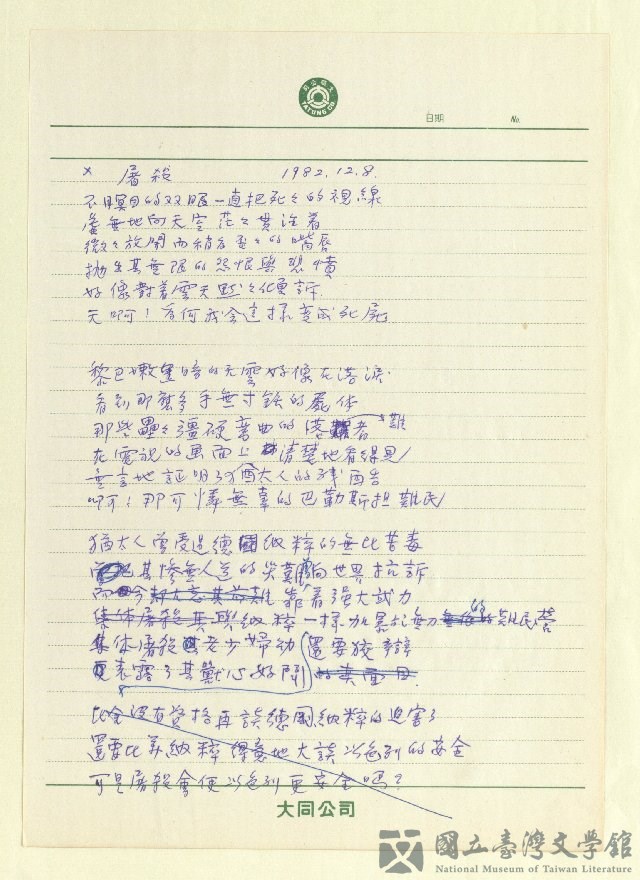 大同公司
TATUNG CO.
日期 No.
× 屠殺 1982.12.8.
不瞑目的双眼一直把死々的視線
虛無地向天空茫々貫注着
微々放開而結 的嘴唇
拋出其無限的怨恨與悲憤
好像對着雲天 訴
天啊！為何我會這樣 死屍
黎巴嫩黑暗的天雲好像在落淚
看到那麼多手無寸鉄的屍体
那些壘々彊硬彎曲的落難者
在電視的画面上清楚地看得見
無言地証明了酋太人的殘酷
啊！那可憐無辜的巴勒斯坦難民
猶太人曾受過德國納粹的無比苦毒
其慘無人道的災難向世界抗訴
而今却太忘其苦難 靠着强大武力
集体屠殺 其 納粹一樣加 於無力的難民營
集体屠殺老少婦幼 還要狡辯
表露了其獸心好鬪 的真面目
比金沒有資格再談德國納粹的迫害了
還要比美納粹 得意地大談以色列的安全
可是屠殺會使以色列更安全嗎？
大同公司
國立臺灣文學館
National Museum of Taiwan Literature